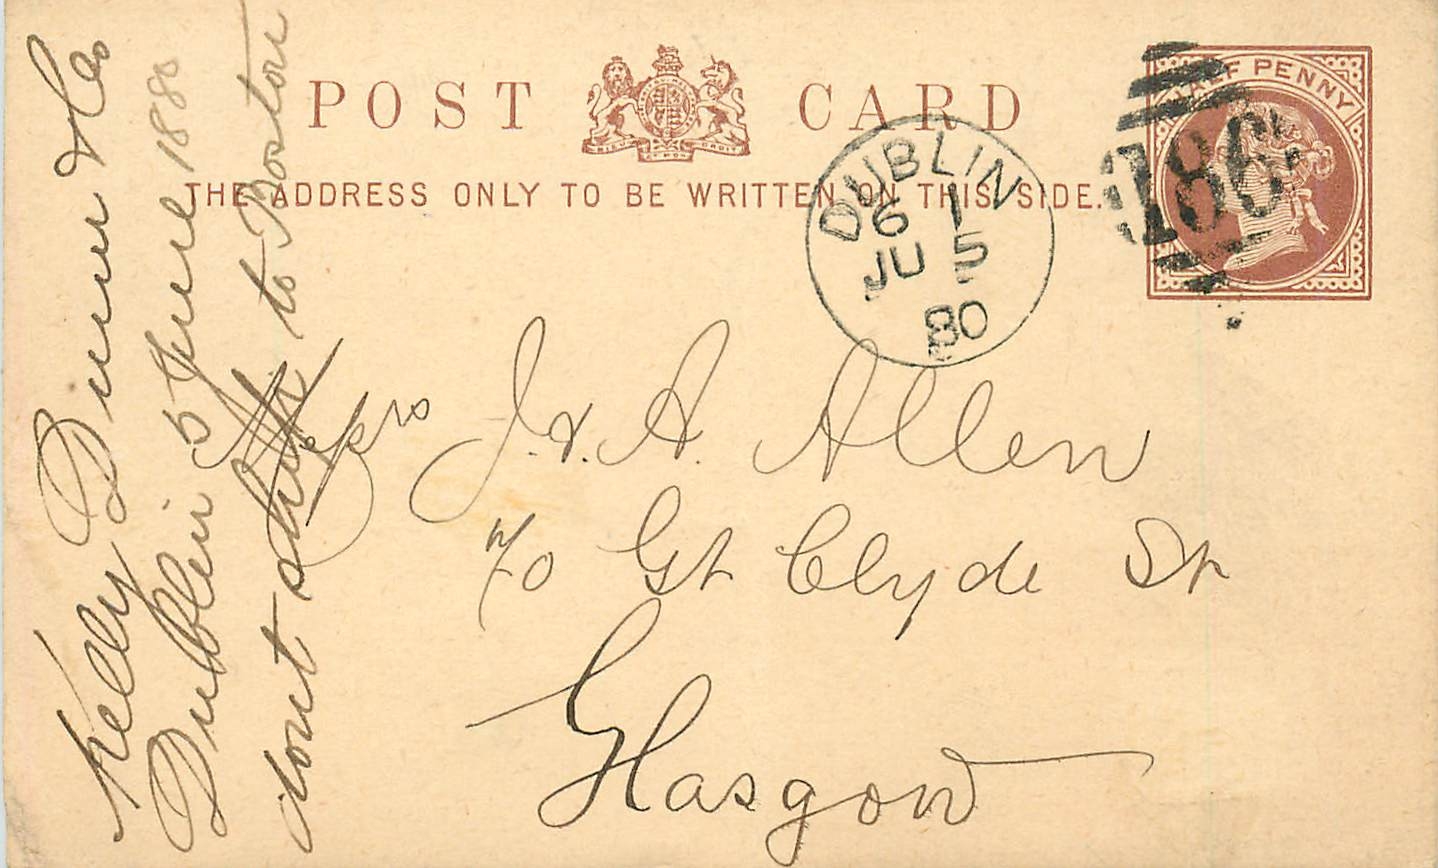 POST CARD
THE ADDRESS ONLY TO BE WRITTEN ON THIS SIDE.
HALF PENNY
186
DUBLIN
6 1
JU 5
80
J. & A. Allen
70 Gt Clyde St
Glasgow
Kelly Dunn & Co
Dublin 5 June 1880
dont ship to Boston